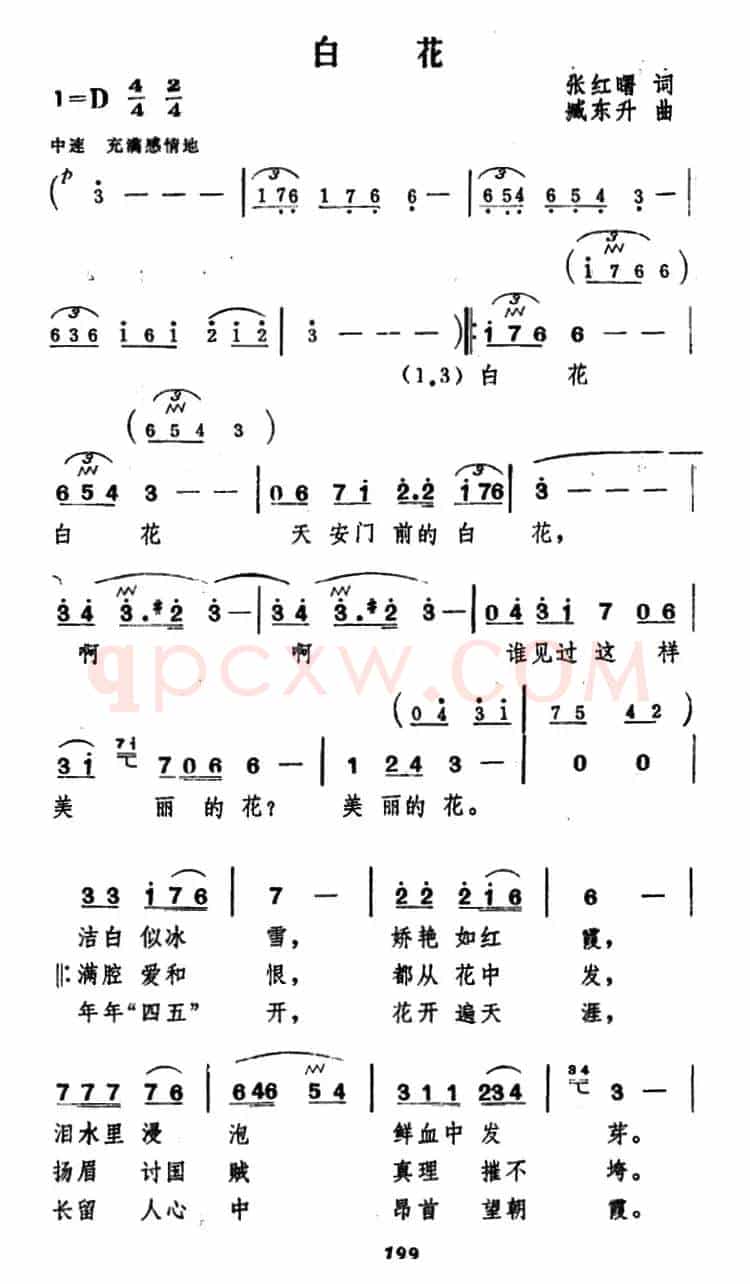 白 花
1=D 4/4 2/4
张红曙 词
臧东升 曲
中速 充满感情地
( p 3 — — — | 176 1 7 6 6 — | 654 6 5 4 3 — |
( 1 7 6 6 )
636 1 6 1 2 1 2 | 3 — — — ) ‖: 1 7 6 6 — — |
(1.3) 白 花
( 6 5 4 3 )
6 5 4 3 — — | 0 6 7 1 2. 2 1 76 | 3 — — — |
白 花 天 安门 前的 白 花,
3 4 3. #2 3 — | 3 4 3. #2 3 — | 0 4 3 1 7 0 6 |
啊 啊 谁见过 这 样
qpcxw.COM
( 0 4 3 1 | 7 5 4 2 )
3 1 71 7 0 6 6 — | 1 2 4 3 — | 0 0 |
美 丽 的 花? 美 丽的 花。
3 3 1 7 6 | 7 — | 2 2 2 1 6 | 6 — |
洁白 似冰 雪, 娇艳 如红 霞,
‖: 满腔 爱和 恨, 都从 花中 发,
年年“四五” 开, 花开 遍天 涯,
7 7 7 7 6 | 6 4 6 5 4 | 3 1 1 2 3 4 | 34 3 — |
泪水里 浸 泡 鲜血中 发 芽。
扬眉 讨国 贼 真理 摧不 垮。
长留 人心 中 昂首 望朝 霞。
199